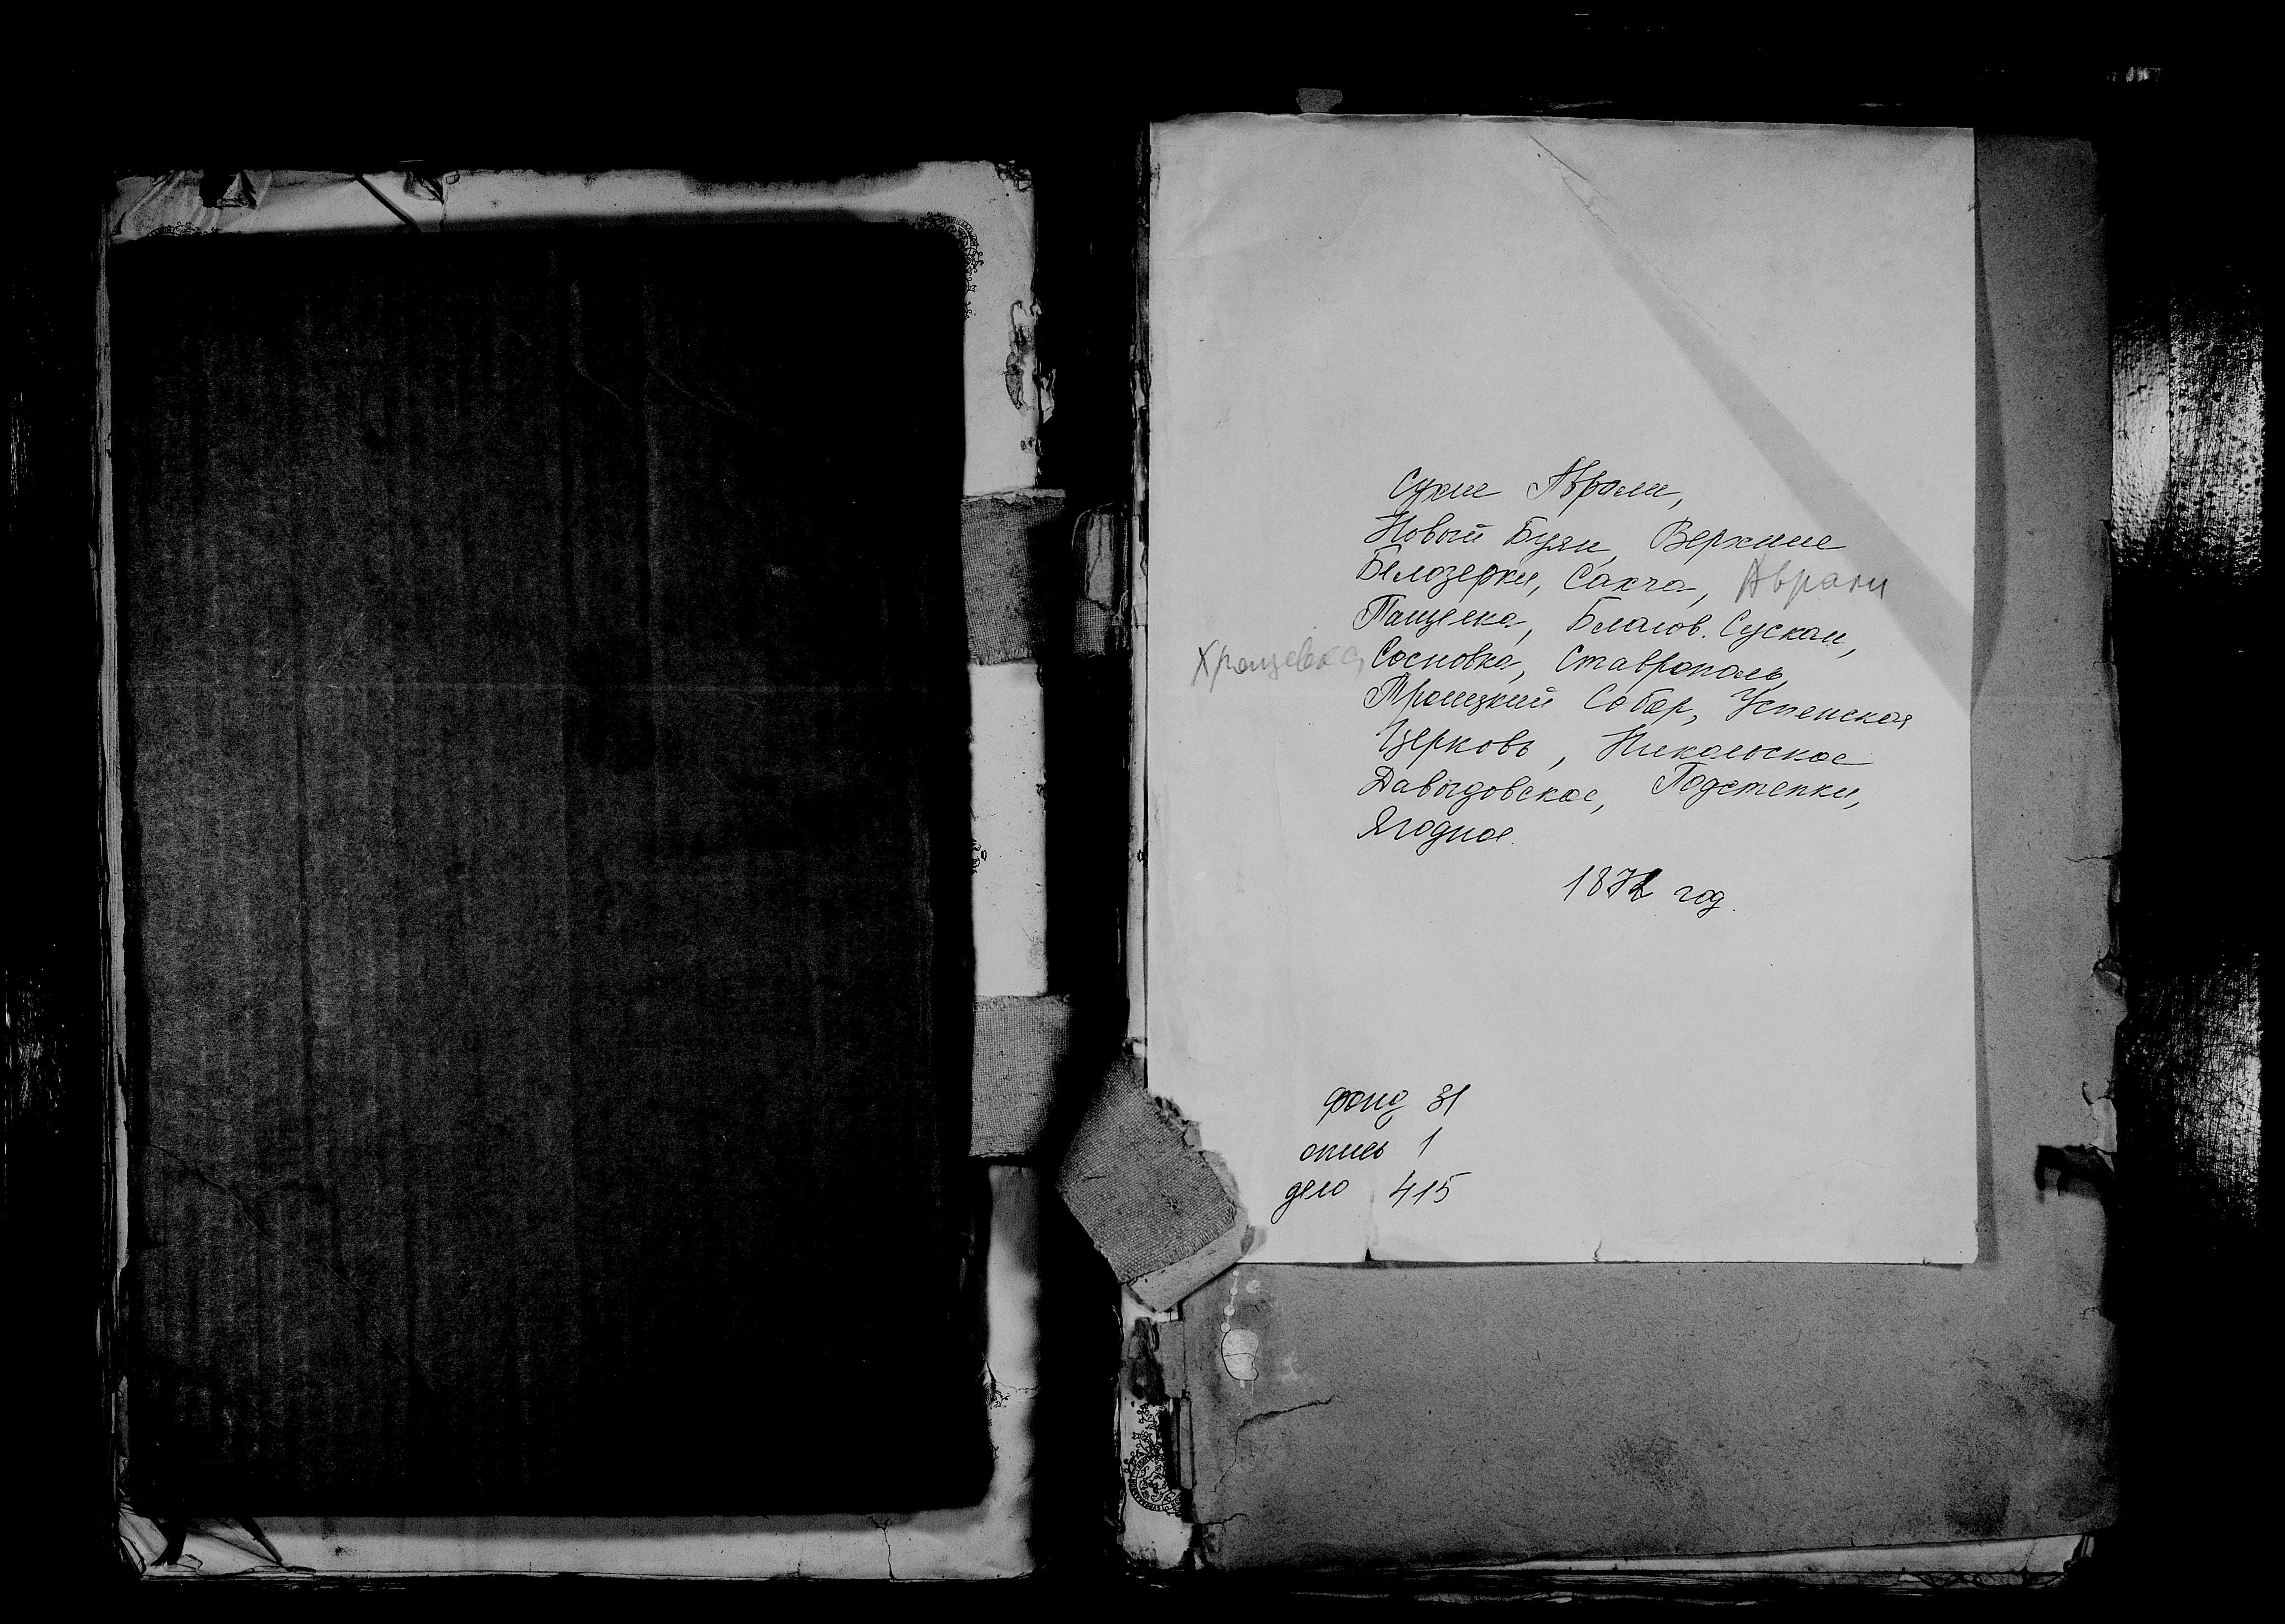 Сухие Аврали,
Новый Буян, Верхние
Белозерки, Сакча, Аврали
Ташелка, Благов. Сускан,
Хрящевка, Сосновка, Ставрополь,
Троицкий Собор, Успенская
Церковь, Никольское
Давыдовское, Подстепки,
Ягодное.
1872 год.
фонд 31
опись 1
дело 415